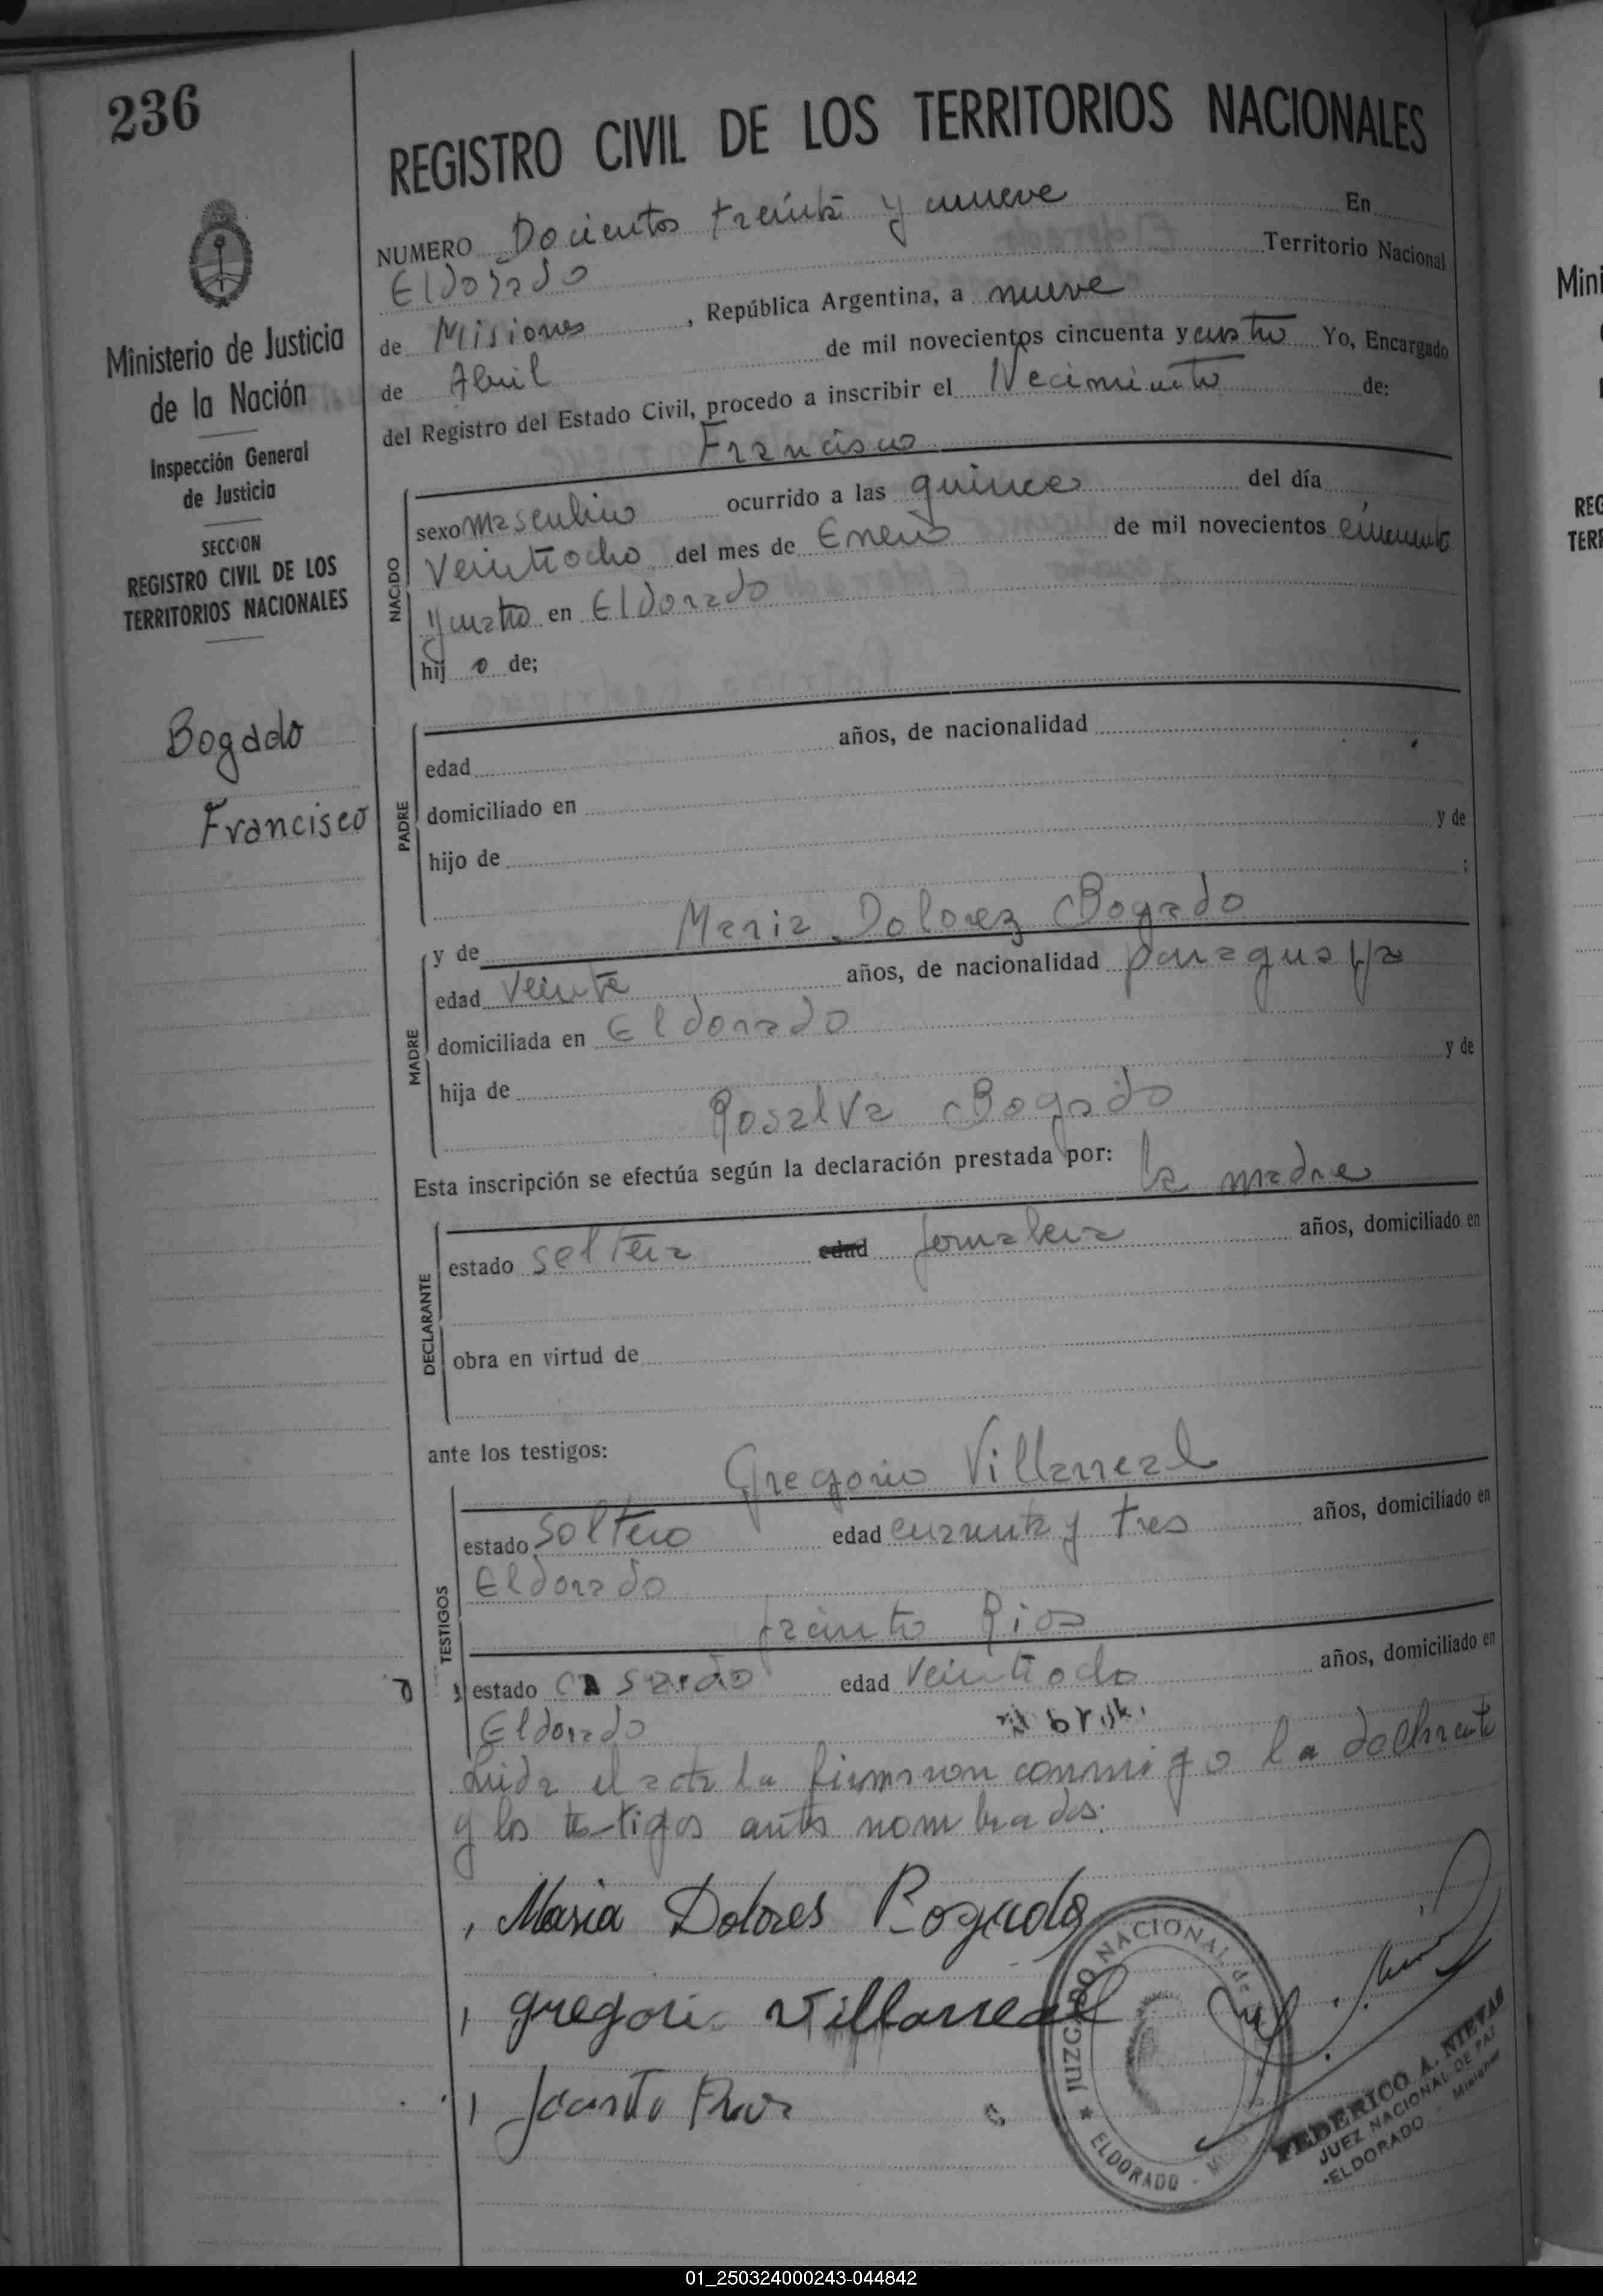 236
REGISTRO CIVIL DE LOS TERRITORIOS NACIONALES
NUMERO Docientos treinta y nueve En
Eldorado Territorio Nacional
de Misiones, República Argentina, a nueve
de Abril de mil novecientos cincuenta y cuatro Yo, Encargado
del Registro del Estado Civil, procedo a inscribir el Necimiento de:
Francisco
sexo masculino ocurrido a las quince del día
Veintiocho del mes de Enero de mil novecientos cincuenta
y cuatro en Eldorado
hij o de;
NACIDO
Ministerio de Justicia
de la Nación
Inspección General
de Justicia
SECCION
REGISTRO CIVIL DE LOS
TERRITORIOS NACIONALES
Bogado
Francisco
edad años, de nacionalidad
domiciliado en
hijo de y de
;
PADRE
y de Maria Dolorez Bogado
edad Veinte años, de nacionalidad paraguaya
domiciliada en Eldorado
hija de y de
Rosalva Bogado
MADRE
Esta inscripción se efectúa según la declaración prestada por: la madre
estado soltera edad jornalera años, domiciliado en
obra en virtud de
DECLARANTE
ante los testigos: Gregorio Villarreal
estado soltero edad cuarenta y tres años, domiciliado en
Eldorado
Jacinto Rios
estado casado edad Veintiocho años, domiciliado en
Eldorado
TESTIGOS
Leida el acta la firmaron conmigo la declarante
y los testigos antes nombrados:
Maria Dolores Bogado
gregorio Villarreal
Jacinto Rios
JUZGADO NACIONAL de
ELDORADO
FEDERICO A. NIEVAS
JUEZ NACIONAL DE PAZ
ELDORADO - Misiones
Mini
REG
TERR
01_250324000243-044842